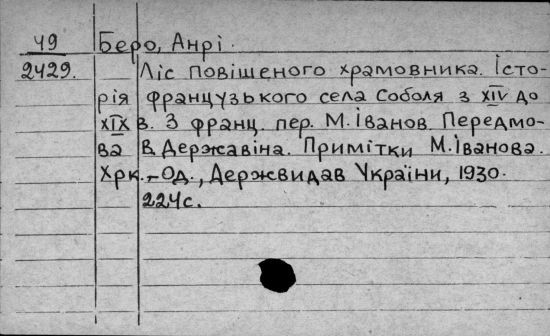 49 Беро, Анрі.
2429. Ліс повішеного храмовника. Істо-
рія французького села Соболя з XIV до
XIX в. З франц. пер. М. Іванов. Передмо-
ва В. Державіна. Примітки М. Іванова.
Хрк.-Од., Держвидав України, 1930.
224с.